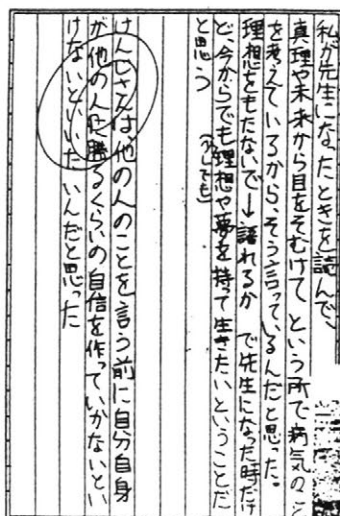 私が先生になったときを読んで、
真理や未来から目をそむけて という所で病気のこと
を考えているから、そう言っているんだと思った。
理想をもたないで→語れるか で先生になった時だけ
ど、今からでも理想や夢を持って生きたいということだ
(少しでも)
と思う
けんじさんは、他の人のことを言う前に自分自身
が他の人に勝るくらいの自信を作っていかないとい
けないといいたいんだと思った